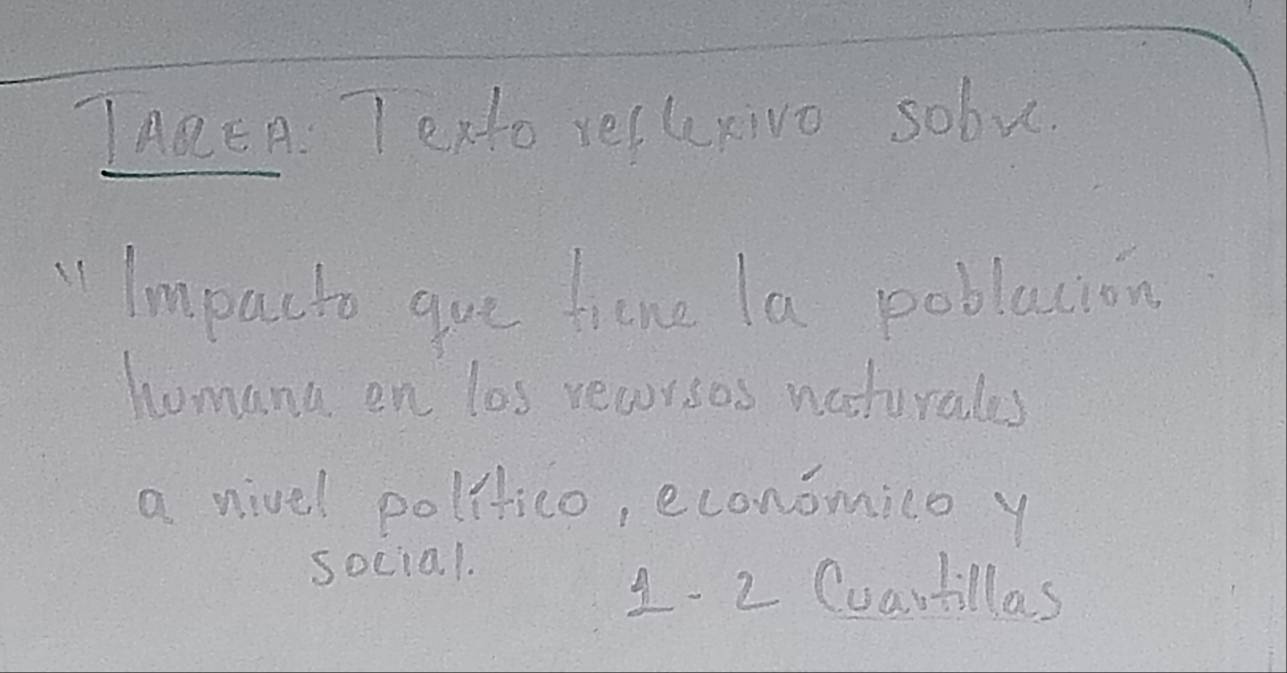 TAREA: Texto reflexivo sobre.
" Impacto que tiene la población
humana en los recursos naturales
a nivel político, económico y
social.
1-2 Cuartillas